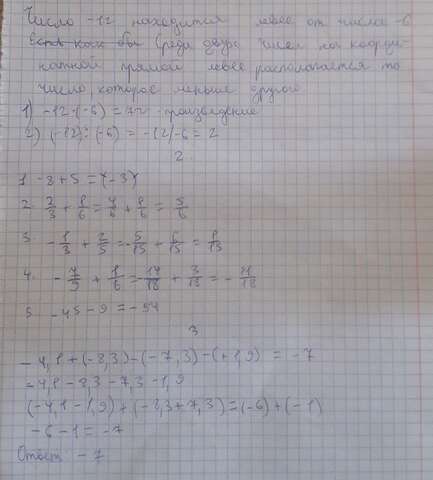 Число -12 находится левее от числа -6
Среди двух чисел на коорди-
натной прямой левее располагается то
число, которое меньше другого
1) -12·(-6) = 72 - произведение
2) (-12):(-6) = -12/-6 = 2
2
1. -8+5 = (-3)
2. 2/3 + 1/6 = 4/6 + 1/6 = 5/6
3. -1/3 + 2/5 = -5/15 + 6/15 = 1/15
4. -7/9 + 1/6 = -14/18 + 3/18 = -11/18
5. -45-9 = -54
3
-4,1+(-8,3)-(-7,3)-(+1,9) = -7
-4,1-8,3-7,3-1,9
(-4,1-1,9)+(-8,3+7,3)=(-6)+(-1)
-6-1=-7
Ответ -7